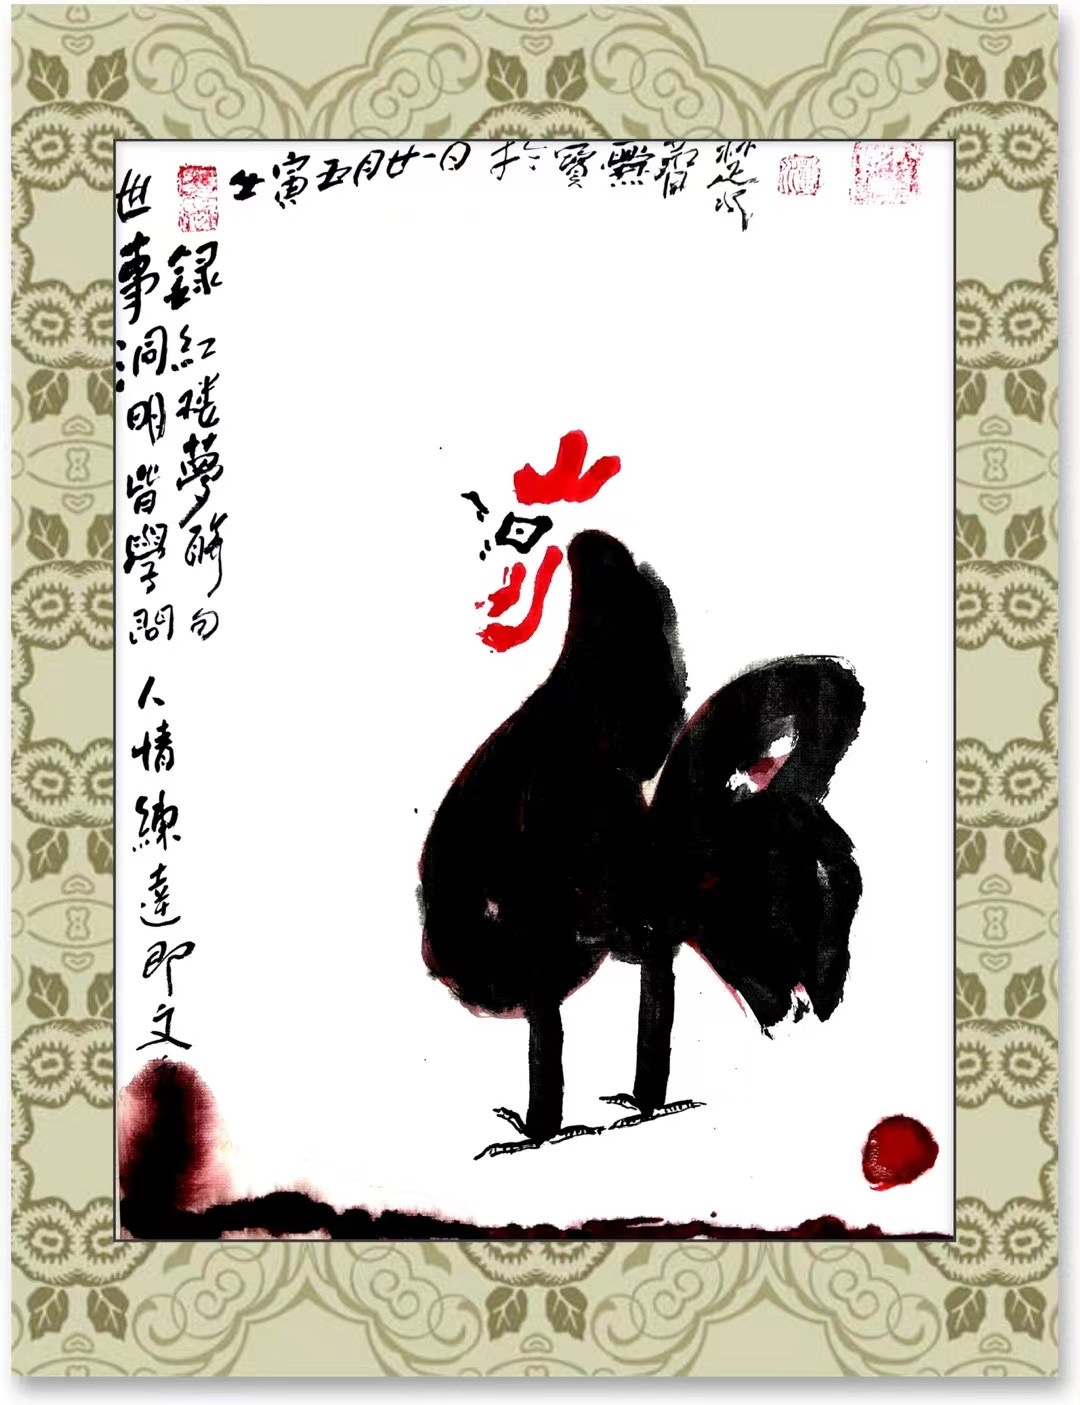 世事洞明皆學問 人情練達即文
錄紅楼夢聯句
壬寅五月廿一日 於寶